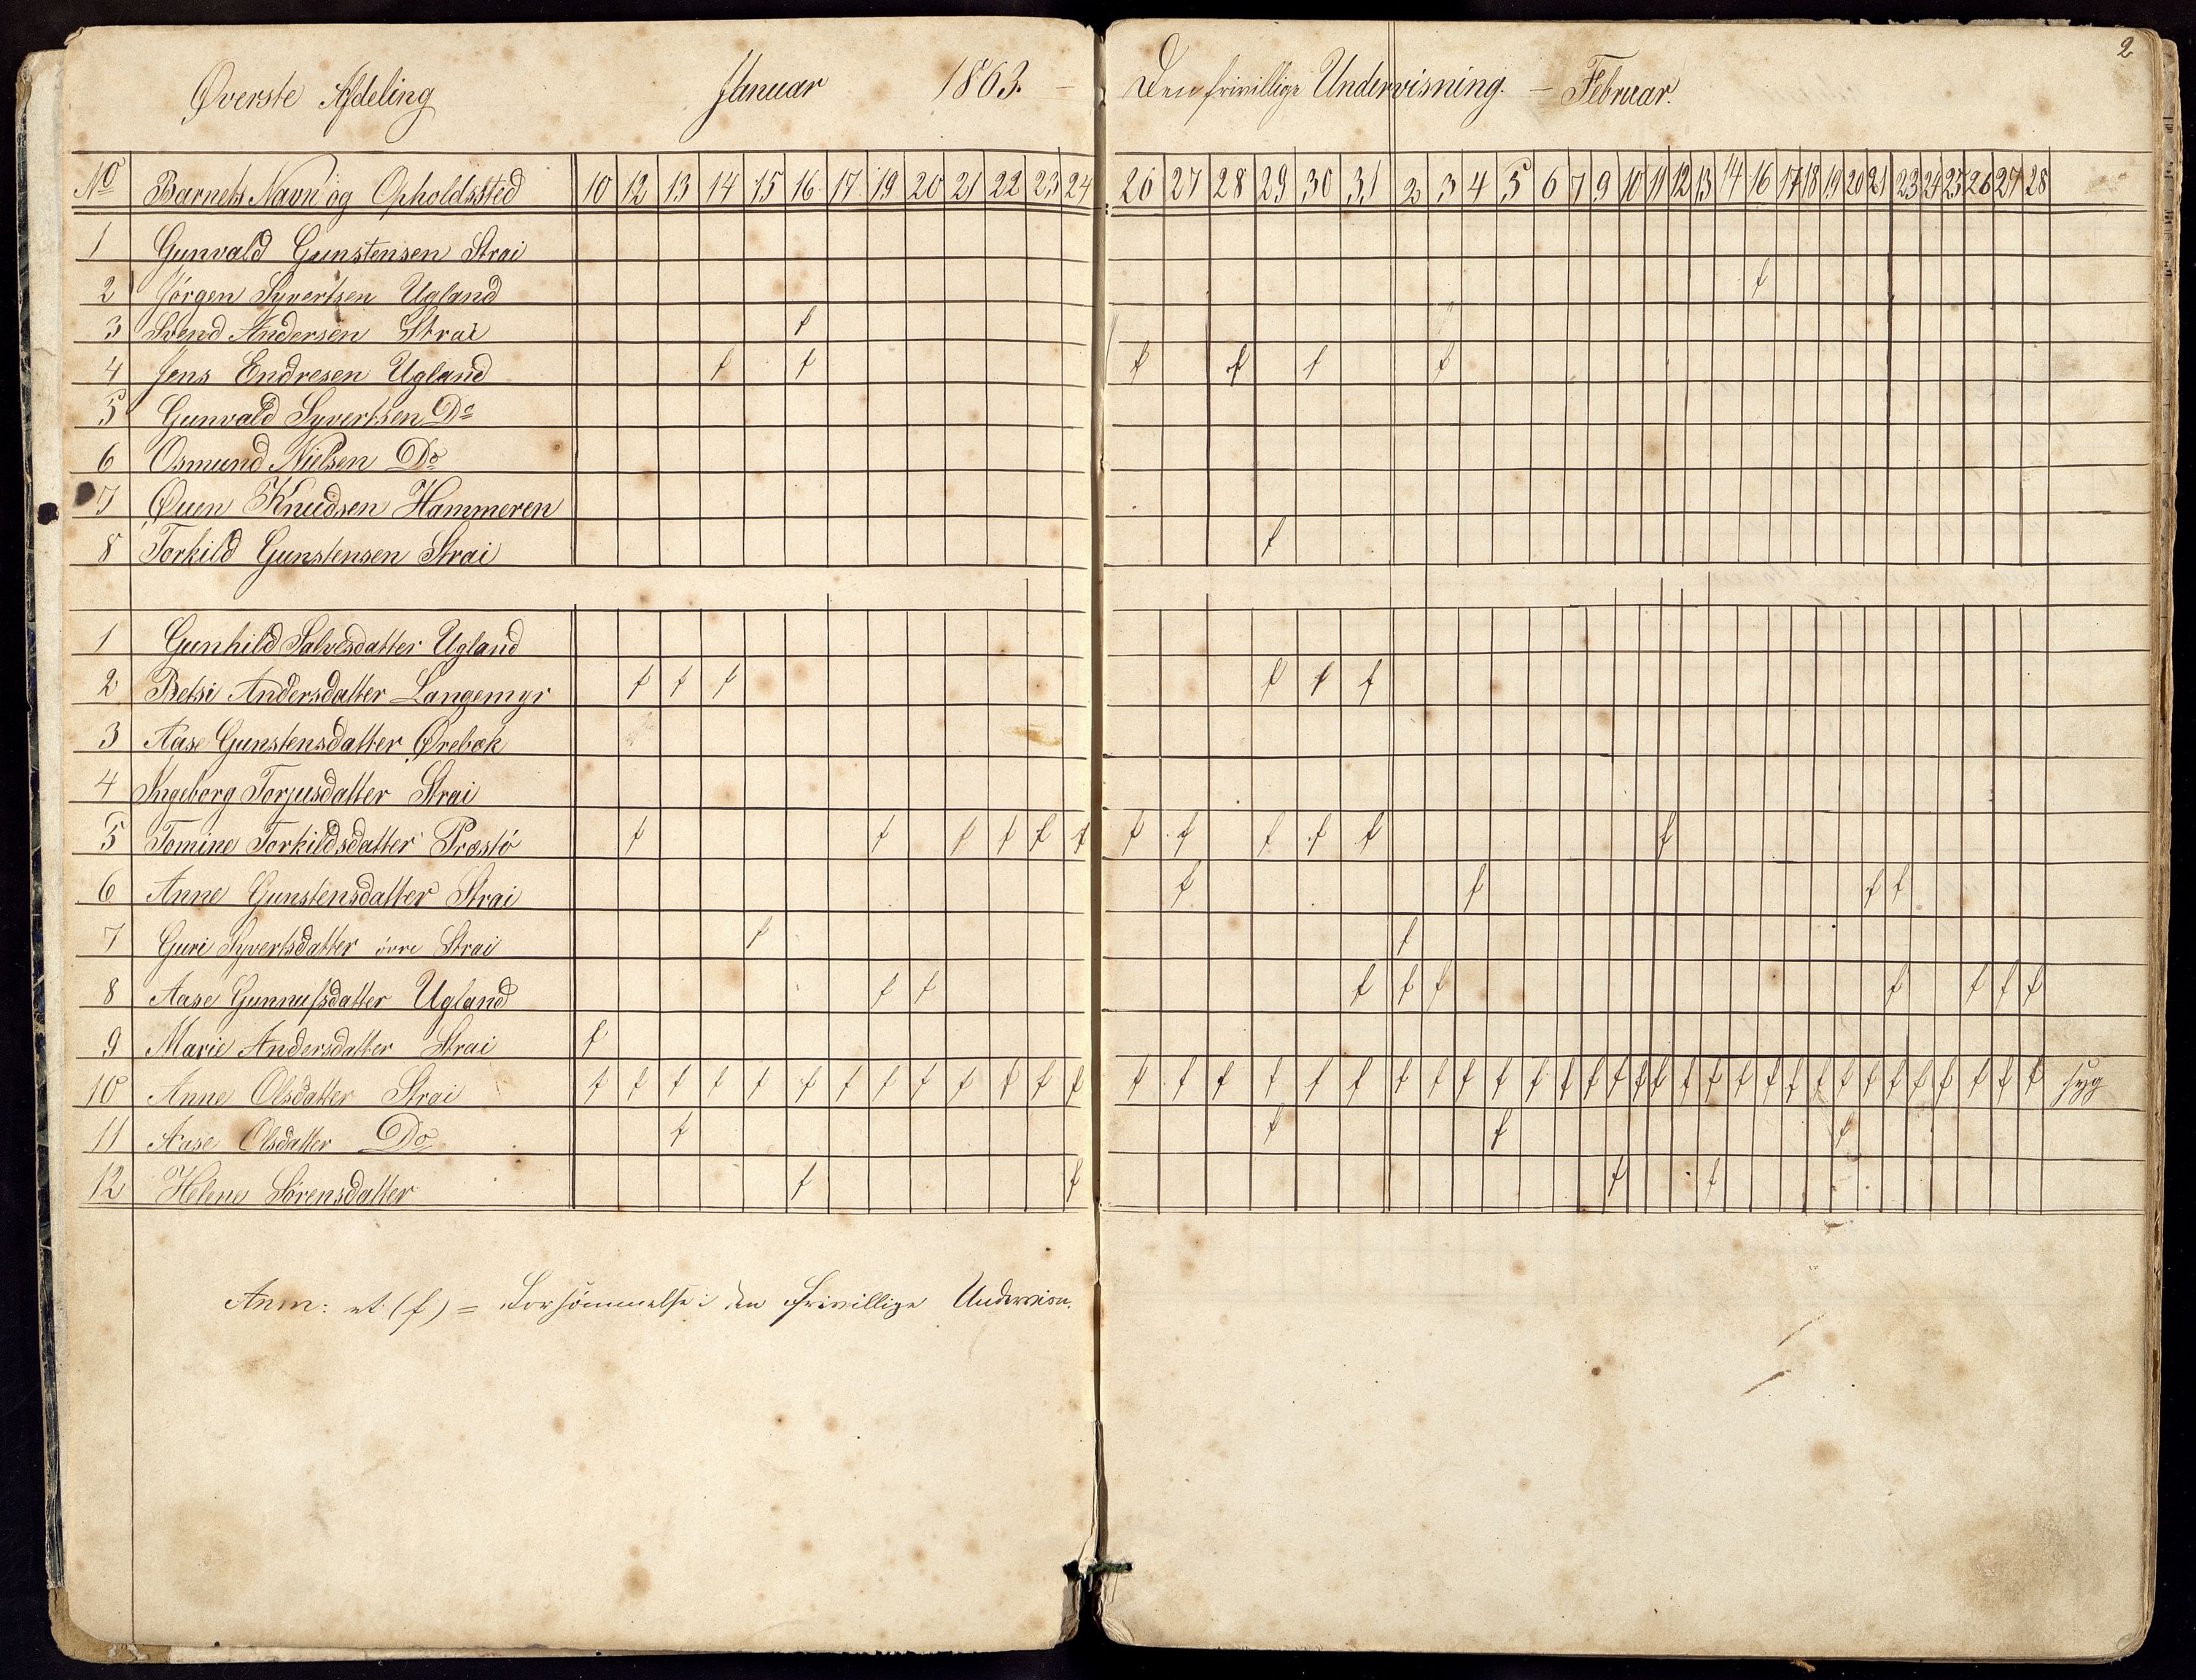 2
Øverste Afdeling Januar 1863. – Den frivillige Undervisning. – Februar.
No Barnets Navn og Opholdssted 10 12 13 14 15 16 17 19 20 21 22 23 24 26 27 28 29 30 31 2 3 4 5 6 7 9 10 11 12 13 14 16 17 18 19 20 21 23 24 25 26 27 28
1 Gunvald Gunstensen Strai
2 Jörgen Syvertsen Ugland f
3 Svend Andersen Strai f
4 Jens Endresen Ugland f f f f f f
5 Gunvald Syvertsen Do
6 Osmund Nielsen Do
7 Øuen Knudsen Hammeren
8 Torkild Gunstensen Strai f
1 Gunhild Salvesdatter Ugland
2 Betsi Andersdatter Langemyr f f f f f f
3 Aase Gunstensdatter Ørebæk
4 Ingeborg Torjusdatter Strai
5 Tomine Torkildsdatter Præstö f f f f f f f f f f f f
6 Anne Gunstensdatter Strai f f f f
7 Guri Syvertsdatter övre Strai f f
8 Aase Gunnufsdatter Ugland f f f f f f f f f
9 Marie Andersdatter Strai f
10 Anne Olsdatter Strai f f f f f f f f f f f f f f f f f f f f f f f f f f f f f f f f f f f f f f f f f f f syg
11 Aase Olsdatter Do f f f f
12 Helene Sörensdatter f f f f
Anm: et (f) = Forsömmelse i den frivillige Undervisn.